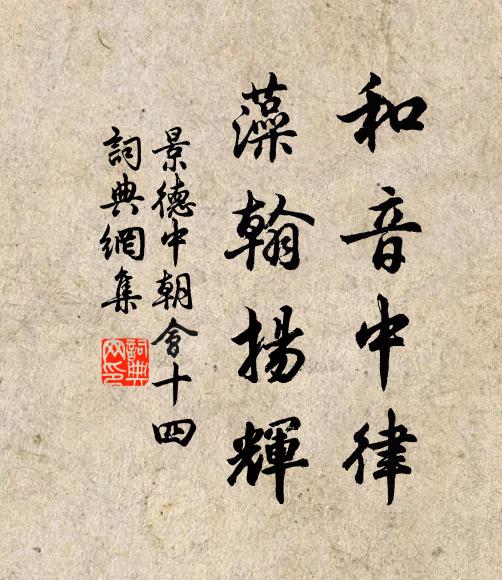 和音中律
藻翰揚輝
景德中朝會十四
詞典網集
詞典
网印